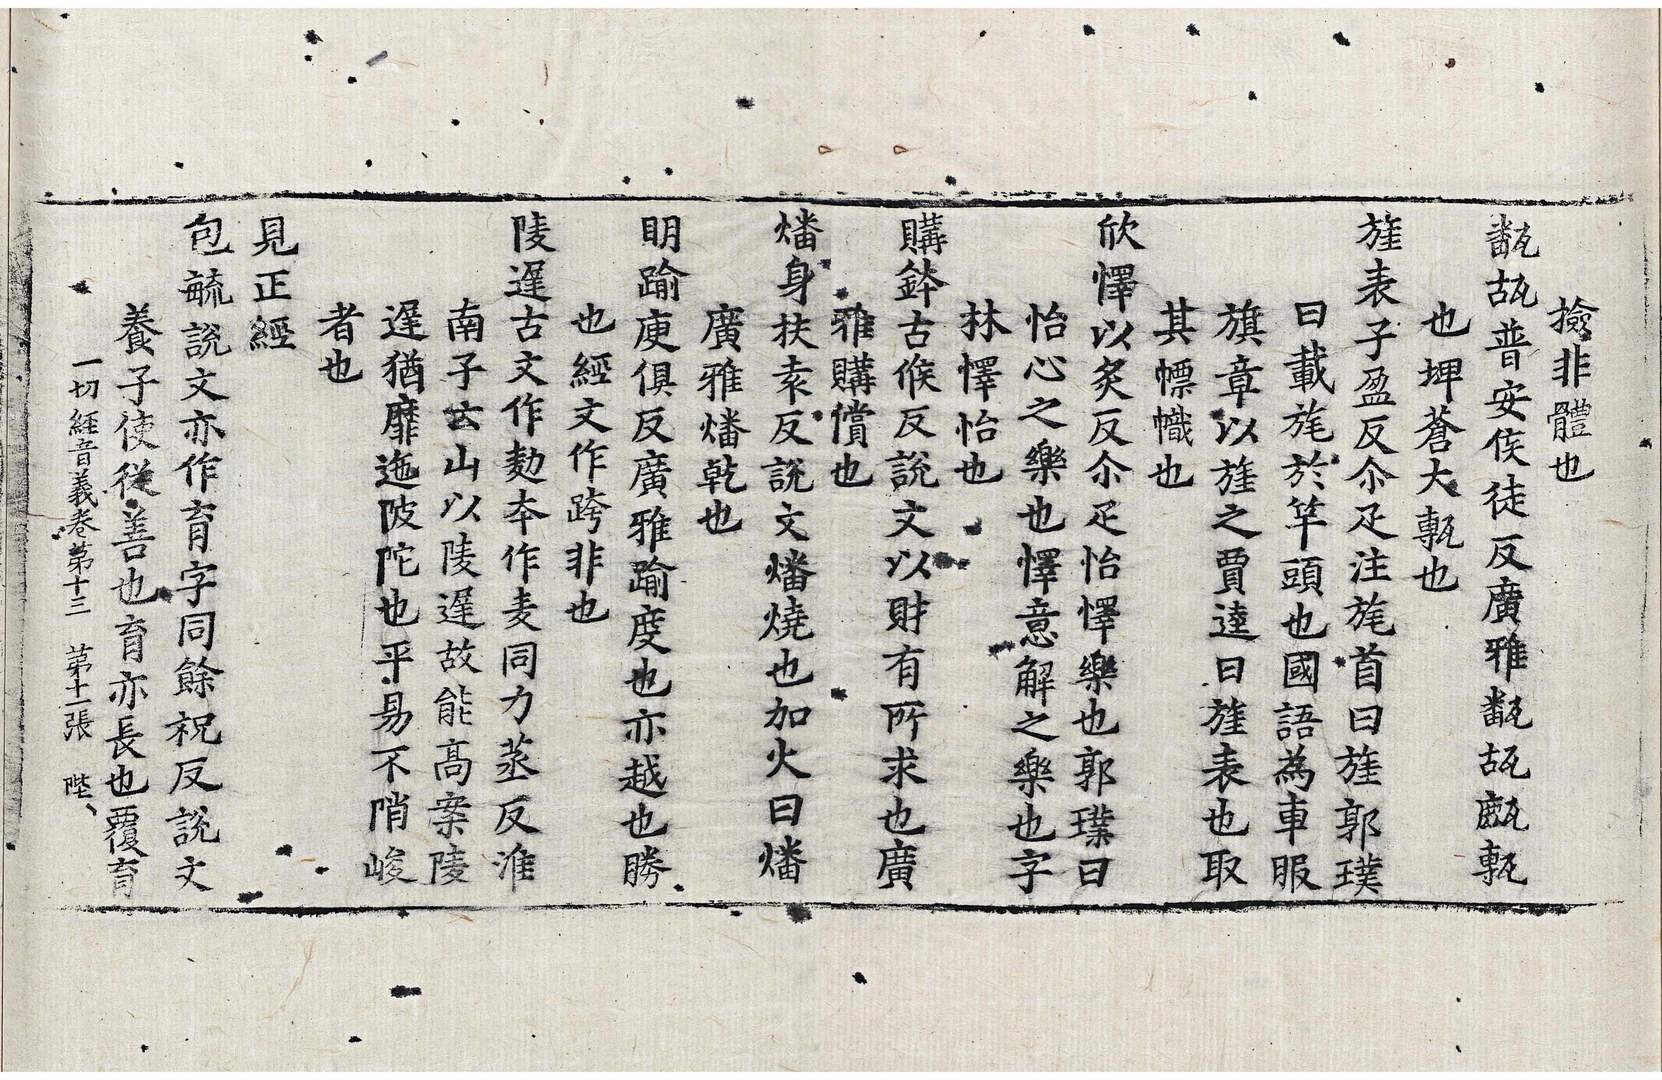 撿非體也
甂瓳普安侯徒反廣雅甂瓳甗甎
也埤蒼大甎也
旌表子盈反尒疋注旄首曰旌郭璞
曰載旄於竿頭也國語為車服
旗章以旌之賈逵曰旌表也取
其幖幟也
欣懌以炙反尒疋怡懌樂也郭璞曰
怡心之樂也懌意解之樂也字
林懌怡也
購鉢古候反說文以財有所求也廣
雅購償也
燔身扶袁反說文燔燒也加火曰燔
廣雅燔乾也
明踰庾俱反廣雅踰度也亦越也勝
也經文作跨非也
陵遟古文作勑夲作夌同力蒸反淮
南子云山以陵遟故能高案陵
遟猶靡迤陂陀也平易不陗峻
者也
見正經
包毓說文亦作育字同餘祝反說文
養子使從善也育亦長也覆育
一切經音義卷第十三 第十二張 陛